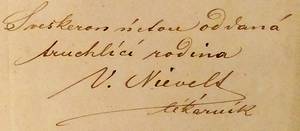 S veškerou úctou oddaná
truchlící rodina
V. Nievelt
lékárník